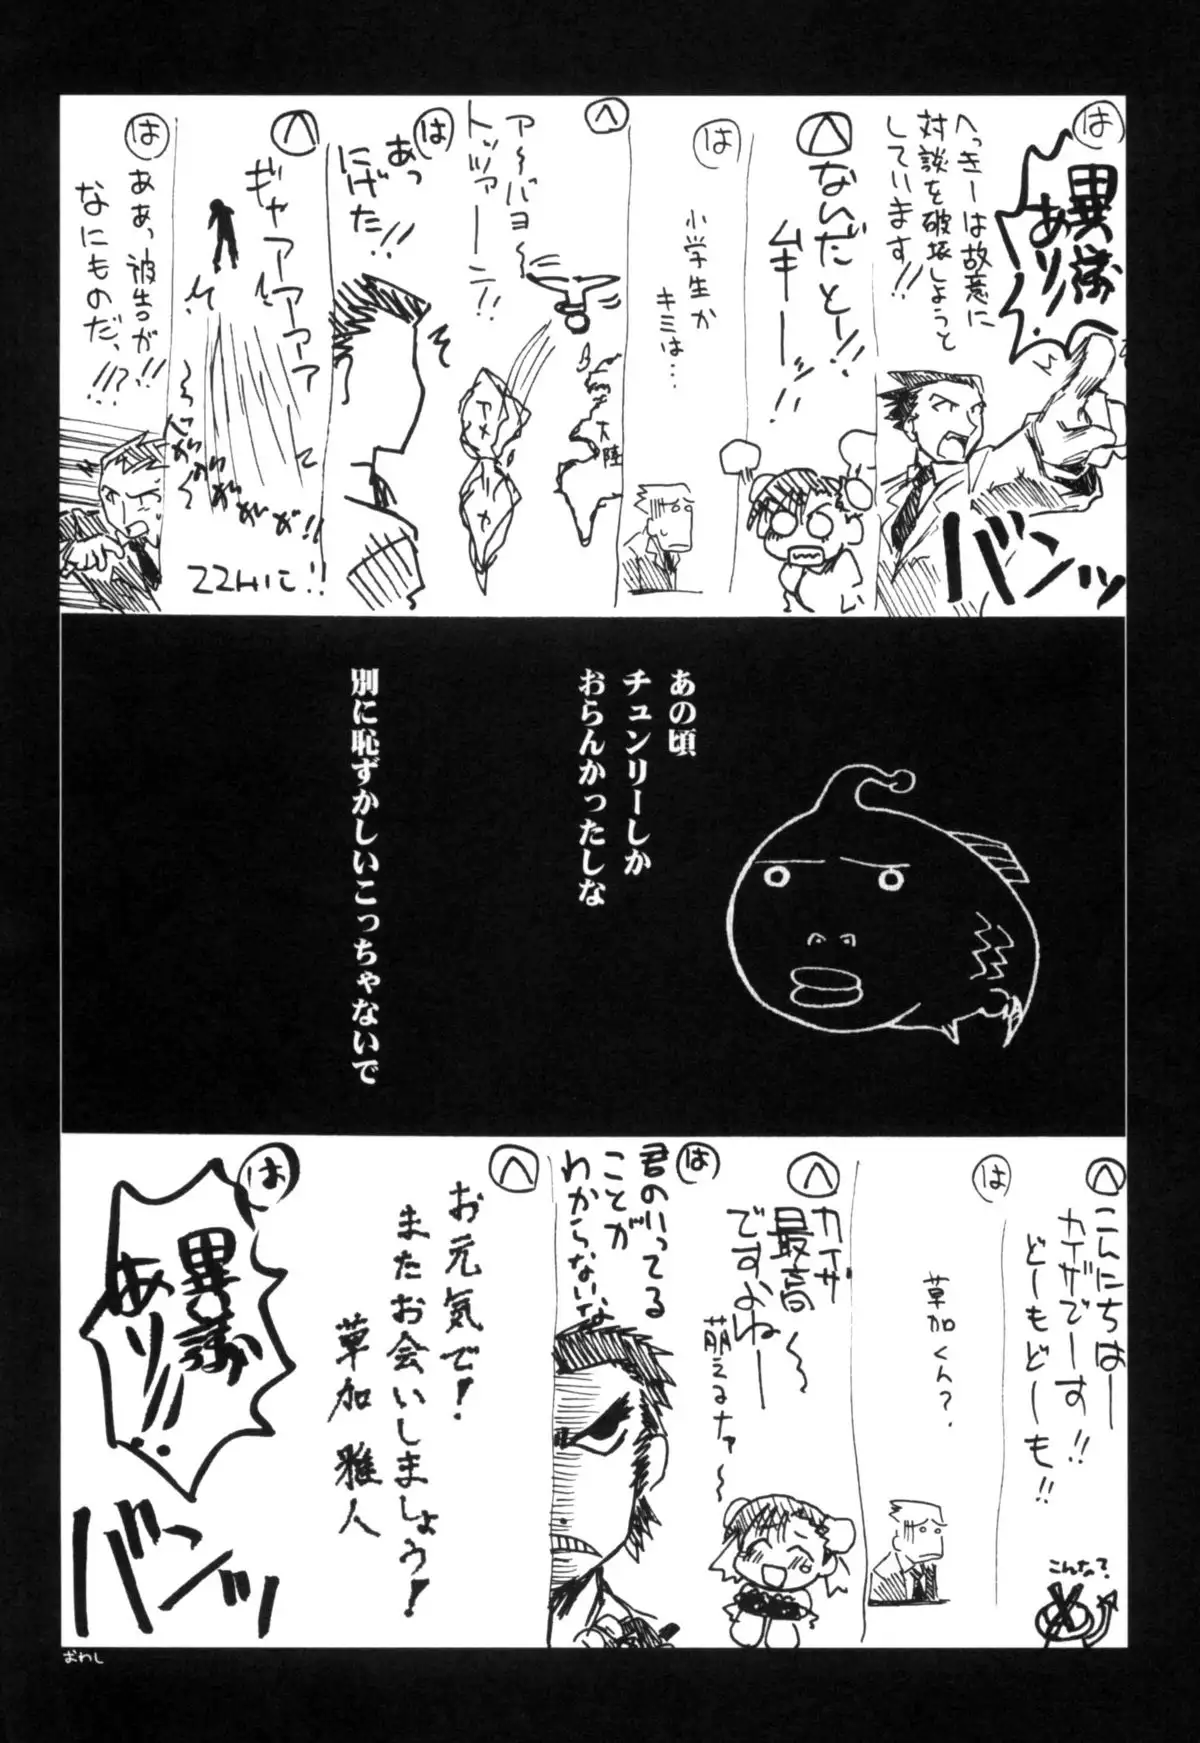 は
異議
あり!!
へっきーは故意に
対談を破壊しようと
しています!!
バンッ
へ
ないだとー!!
ムキーーッ!!
は
小学生か
キミは…
へ
ア〜バヨ〜
トッツァーーン!!
大陸
アメ
は
あっ
にげた!!
へ
ギャアアアアア
ZZHIに!!
は
ああ、被告が!!
なにものだ、!!?
あの頃
チュンリーしか
おらんかったしな
別に恥ずかしいこっちゃないで
へ
こんにちはー
カイザでーす!!
どーもどーも!!
こんなの?
は
草加くん?
へ
カイザ
最高〜
ですよねー
萌えるナァ〜
は
君のいってる
ことが
わからないな
へ
お元気で!
またお会いしましょう!
草加 雅人
は
異議
あり!!
バンッ
おわし